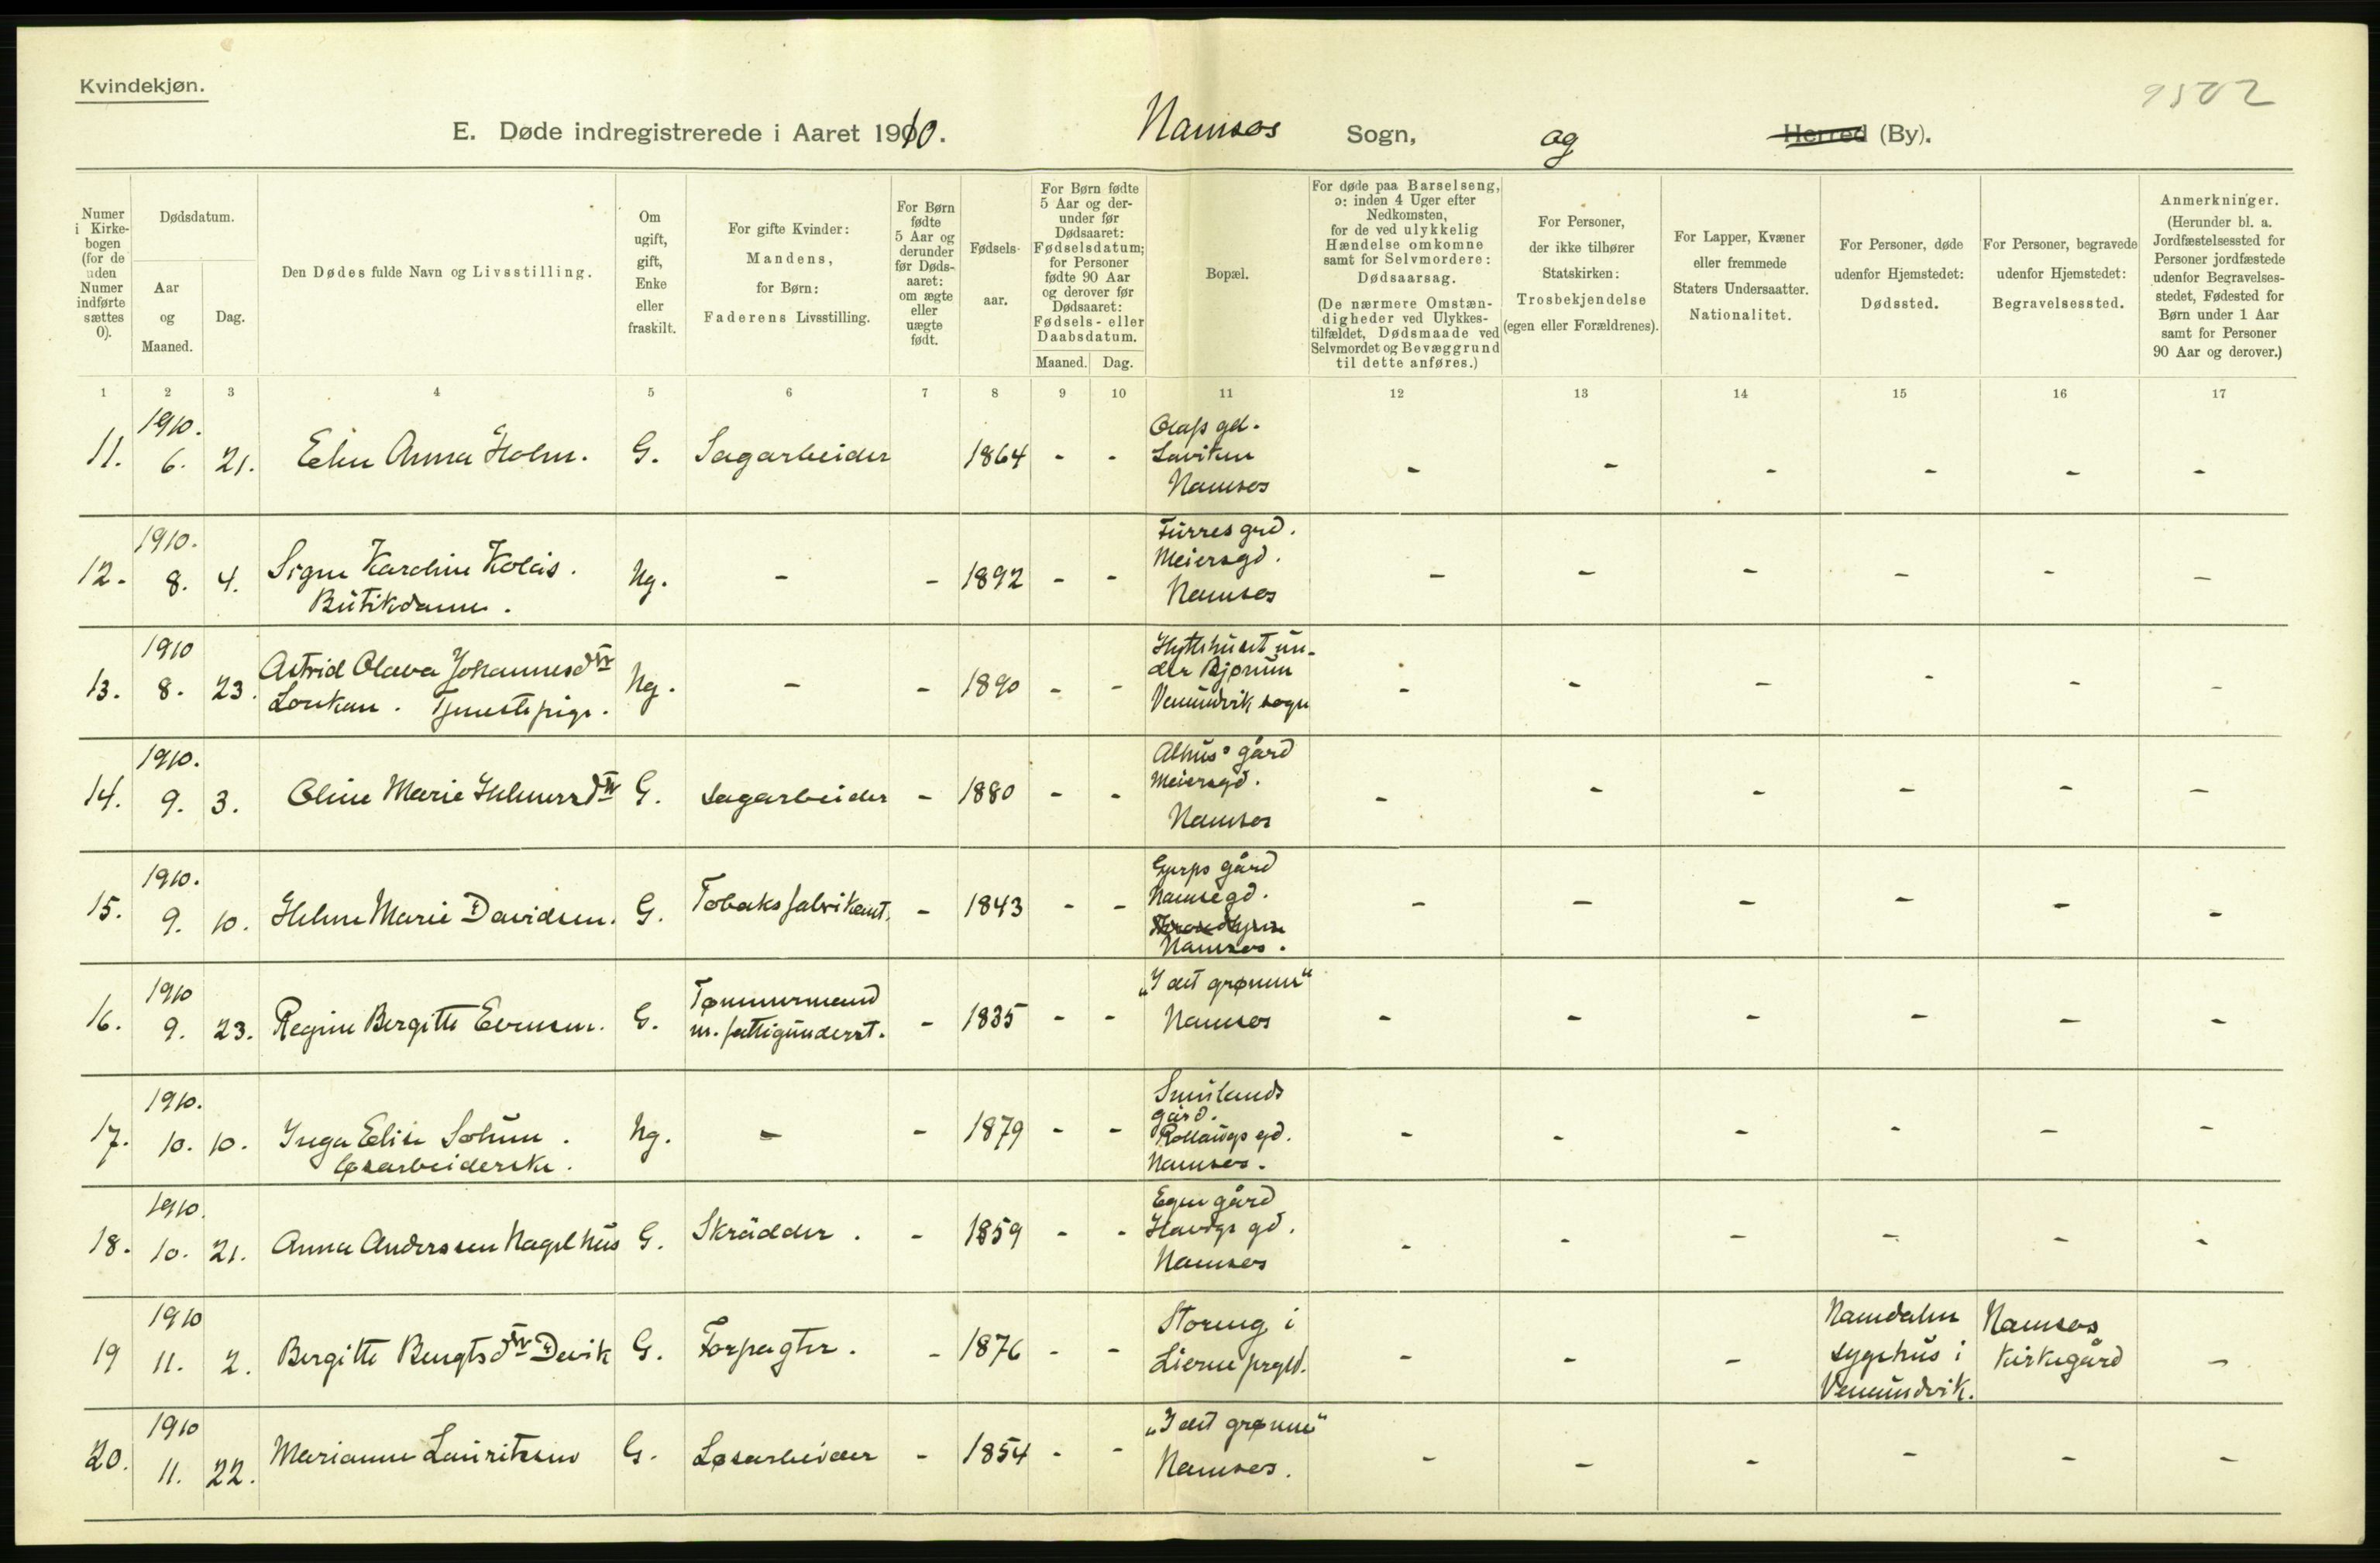 Kvindekjøn.
9502
E. Døde indregistrerede i Aaret 1910. Namsos Sogn, og Herred (By).
Numer i Kirkebogen (for de uden Numer indførte sættes 0).
Dødsdatum.
Aar og Maaned.
Dag.
Den Dødes fulde Navn og Livsstilling.
Om ugift, gift, Enke eller fraskilt.
For gifte Kvinder: Mandens, for Børn: Faderens Livsstilling.
For Børn fødte 5 Aar og derunder før Dødsaaret: om ægte eller uægte født.
Fødselsaar.
For Børn fødte 5 Aar og derunder før Dødsaaret: Fødselsdatum; for Personer fødte 90 Aar og derover før Dødsaaret: Fødsels- eller Daabsdatum.
Maaned. Dag.
Bopæl.
For døde paa Barselseng, ɔ: inden 4 Uger efter Nedkomsten, for de ved ulykkelig Hændelse omkomne samt for Selvmordere: Dødsaarsag.
(De nærmere Omstændigheder ved Ulykkestilfældet, Dødsmaade ved Selvmordet og Bevæggrund til dette anføres.)
For Personer, der ikke tilhører Statskirken: Trosbekjendelse (egen eller Forældrenes).
For Lapper, Kvæner eller fremmede Staters Undersaatter. Nationalitet.
For Personer, døde udenfor Hjemstedet: Dødssted.
For Personer, begravede udenfor Hjemstedet: Begravelsessted.
Anmerkninger.
(Herunder bl. a. Jordfæstelsessted for Personer jordfæstede udenfor Begravelsesstedet, Fødested for Børn under 1 Aar samt for Personer 90 Aar og derover.)
1 2 3 4 5 6 7 8 9 10 11 12 13 14 15 16 17
11. 1910. 6. 21. Elin Anna Holm. G. Sagarbeider 1864 - - Olafs gd. Namsos - - - - - -
12. 1910. 8. 4. Signe Karoline Kolås. Butikdame. Ug. - - 1892 - - Furres grd. Meiersgd. Namsos - - - - - -
13. 1910 8. 23. Astrid Olava Johannesdtr Tjenestepige. Ug. - - 1890 - - Hyttehuset under Bjørum Vemundvik sogn - - - - - -
14. 1910. 9. 3. Oline Marie Helmersdtr G. Sagarbeider - 1880 - - Alhus' gård Meiersgd. Namsos - - - - - -
15. 1910. 9. 10. Helene Marie Davidsen. G. Tobaksfabrikant. - 1843 - - gård Namsegd. Namsos. - - - - - -
16. 1910 9. 23. Regine Bergitte Evensen. G. Tømmermand m. fattigunderst. - 1835 - - „I det grønne“ Namsos - - - - - -
17. 1910. 10. 10. Inga Elise Solum. Løsarbeiderske. Ug. - - 1879 - - Smulands gård. Rollaugs gd. Namsos. - - - - - -
18. 1910. 10. 21. Anna Anderssen Nagelhus G. Skrädder. - 1859 - - Egen gård Havigs gd. Namsos - - - - - -
19 1910 11. 2. Bergitte Bengtsdtr Devik G. Forpagter. - 1876 - - Storeng i Lierne prgld. - - - Namdalen sygehus i Vemundvik. Namsos kirkegård -
20. 1910 11. 22. Marianne Lauritsen G. Løsarbeider - 1854 - - „I det grønne“ Namsos. - - - - - -